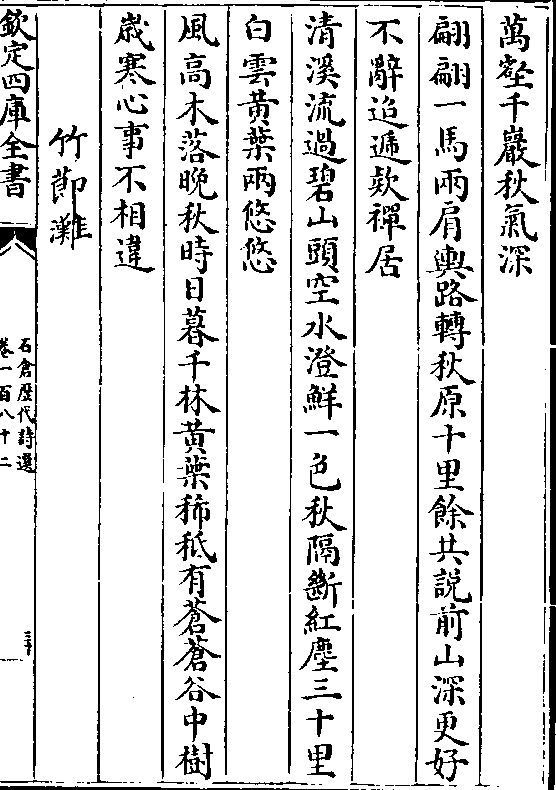 萬壑千巖秋氣深
翩翩一馬兩肩輿路轉秋原十里餘共説前山深更好
不辭迢遞欵禪居
清溪流過碧山頭空水澄鮮一色秋隔斷紅塵三十里
白雲黄葉兩悠悠
風高木落晚秋時日暮千林黄葉稀秪有蒼蒼谷中樹
歲寒心事不相違
竹節灘
欽定四庫全書
石倉歴代詩選
卷一百八十二